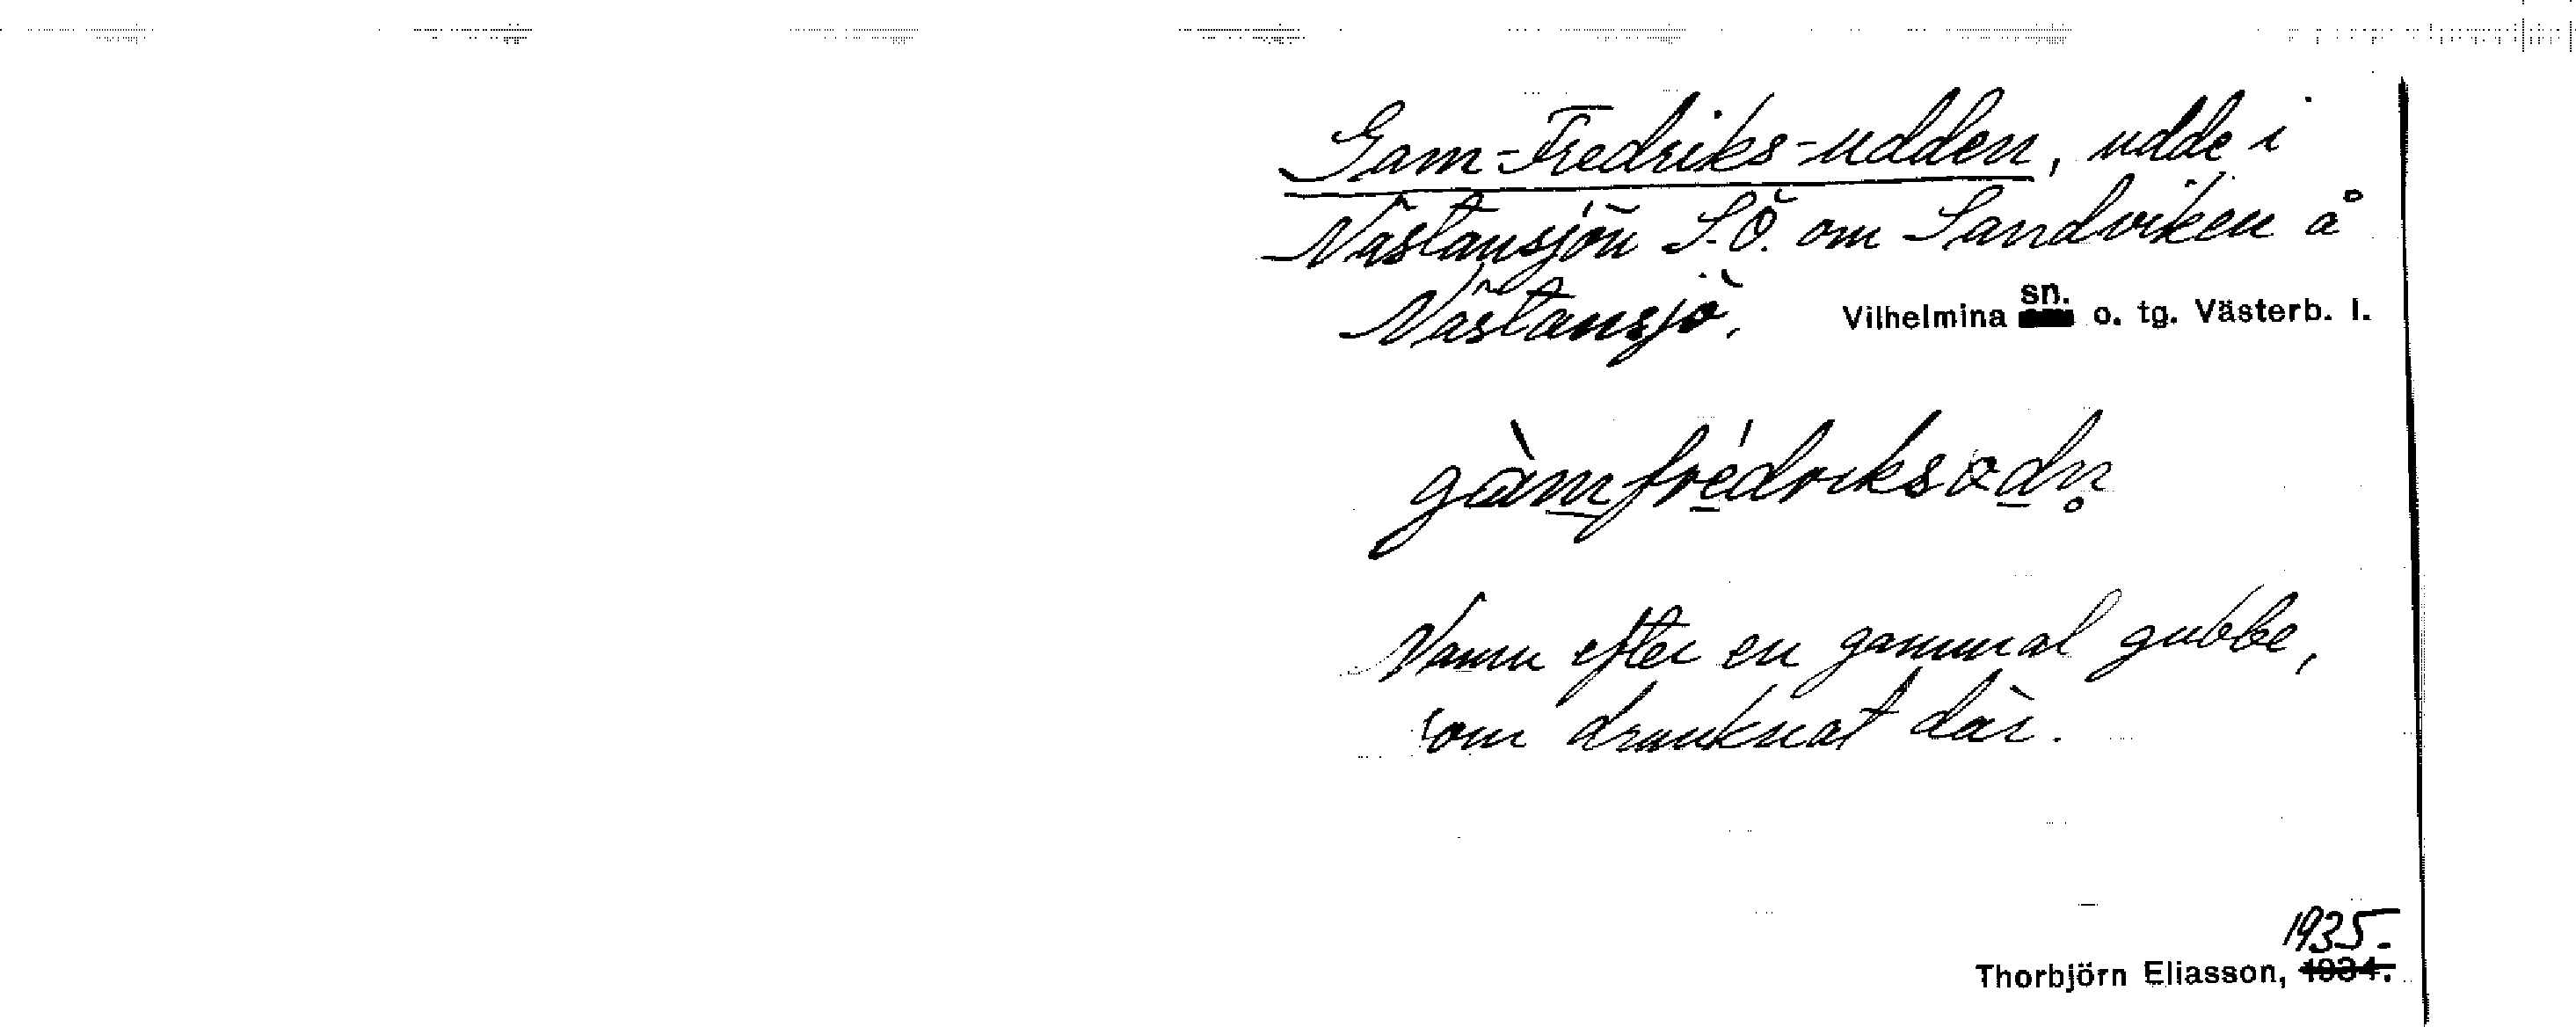 Gam-Fredriks-udden, udde i
Nästansjön S.Ö. om Sandviken å
Nästansjö. Vilhelmina sn. o. tg. Västerb. l.
gàmfrédriksodn̥
Namn efter en gammal gubbe,
som drunknat där.
1935.
Thorbjörn Eliasson, 1934.